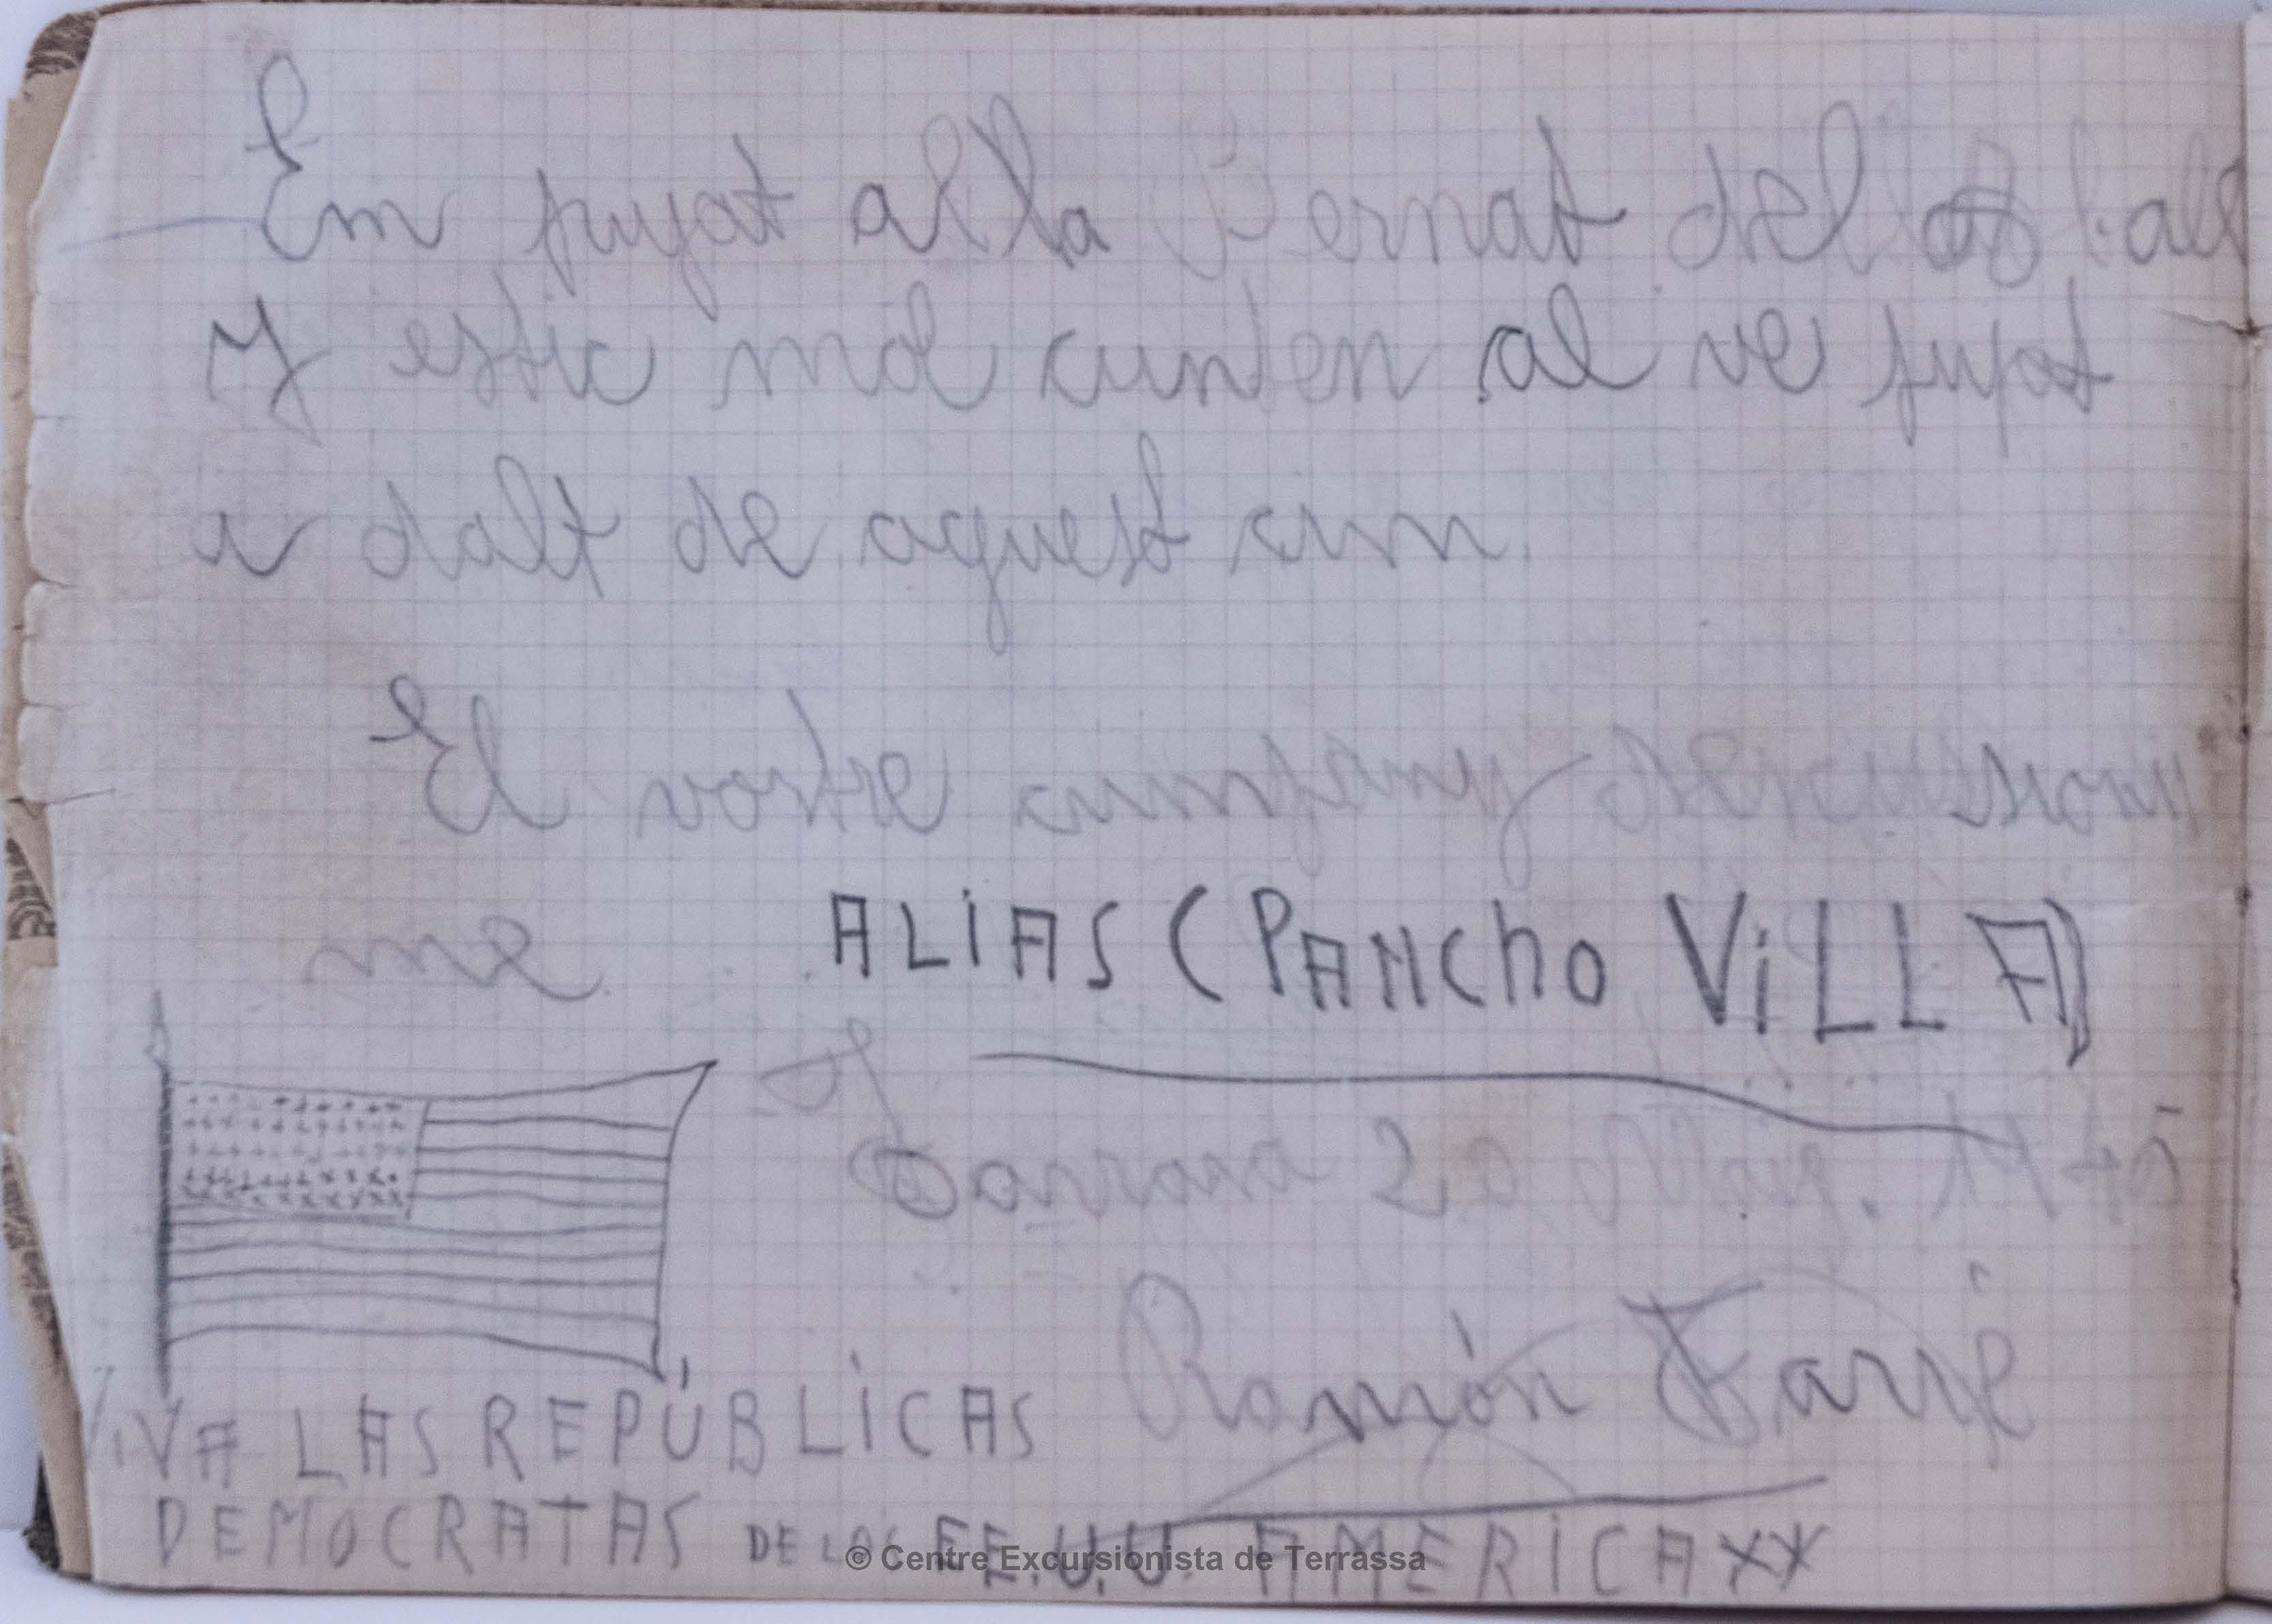 Em pujat alla Bernat del
Y estic mol cunten al ve pujat
a dalt de aquest cim.
El vostre cumpany
me
ALiAS (PANChO ViLLA)
Tarrasa 20 Maig. 1945
Román Farré
ViVA LAS REPÚBLiCAS
DEMOCRATAS DE LOS EE.U.U. AMERiCA XX
© Centre Excursionista de Terrassa